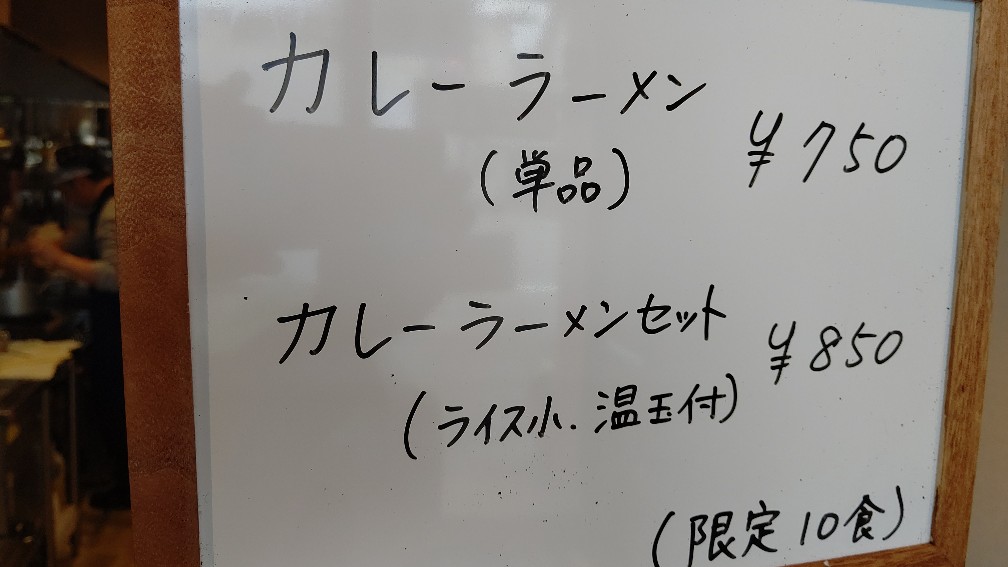 カレーラーメン
¥750
(単品)
カレーラーメンセット
¥850
(ライス小.温玉付)
(限定10食)